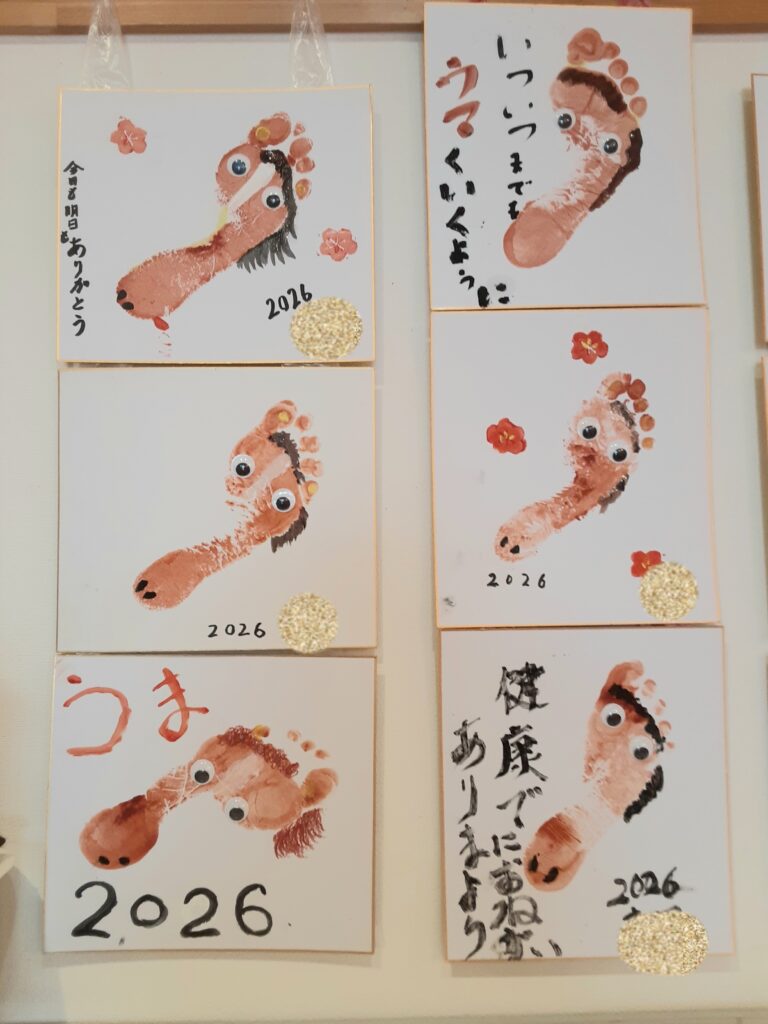 今日も明日も
ありがとう
2026
2026
うま
2026
いついつまでも
ウマくいくように
2026
健康で
ありまより
におねがい
2026